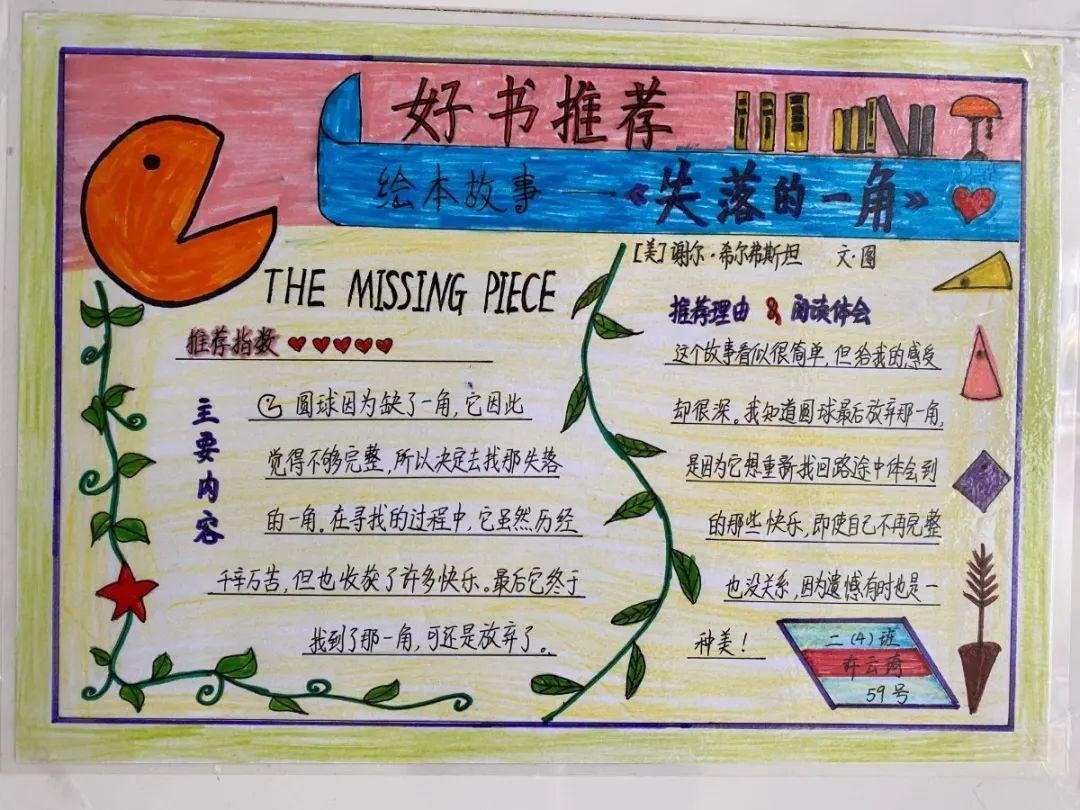 好书推荐
绘本故事——《失落的一角》
[美]谢尔·希尔弗斯坦 文·图
THE MISSING PIECE
推荐指数
主要内容
圆球因为缺了一角,它因此
觉得不够完整,所以决定去找那失落
的一角。在寻找的过程中,它虽然历经
千辛万苦,但也收获了许多快乐。最后它终于
找到了那一角,可还是放弃了。
推荐理由 & 阅读体会
这个故事看似很简单,但给我的感受
却很深。我知道圆球最后放弃那一角,
是因为它想重新找回路途中体会到
的那些快乐,即使自己不再完整
也没关系,因为遗憾有时也是一
种美!
二(4)班
许云
59号